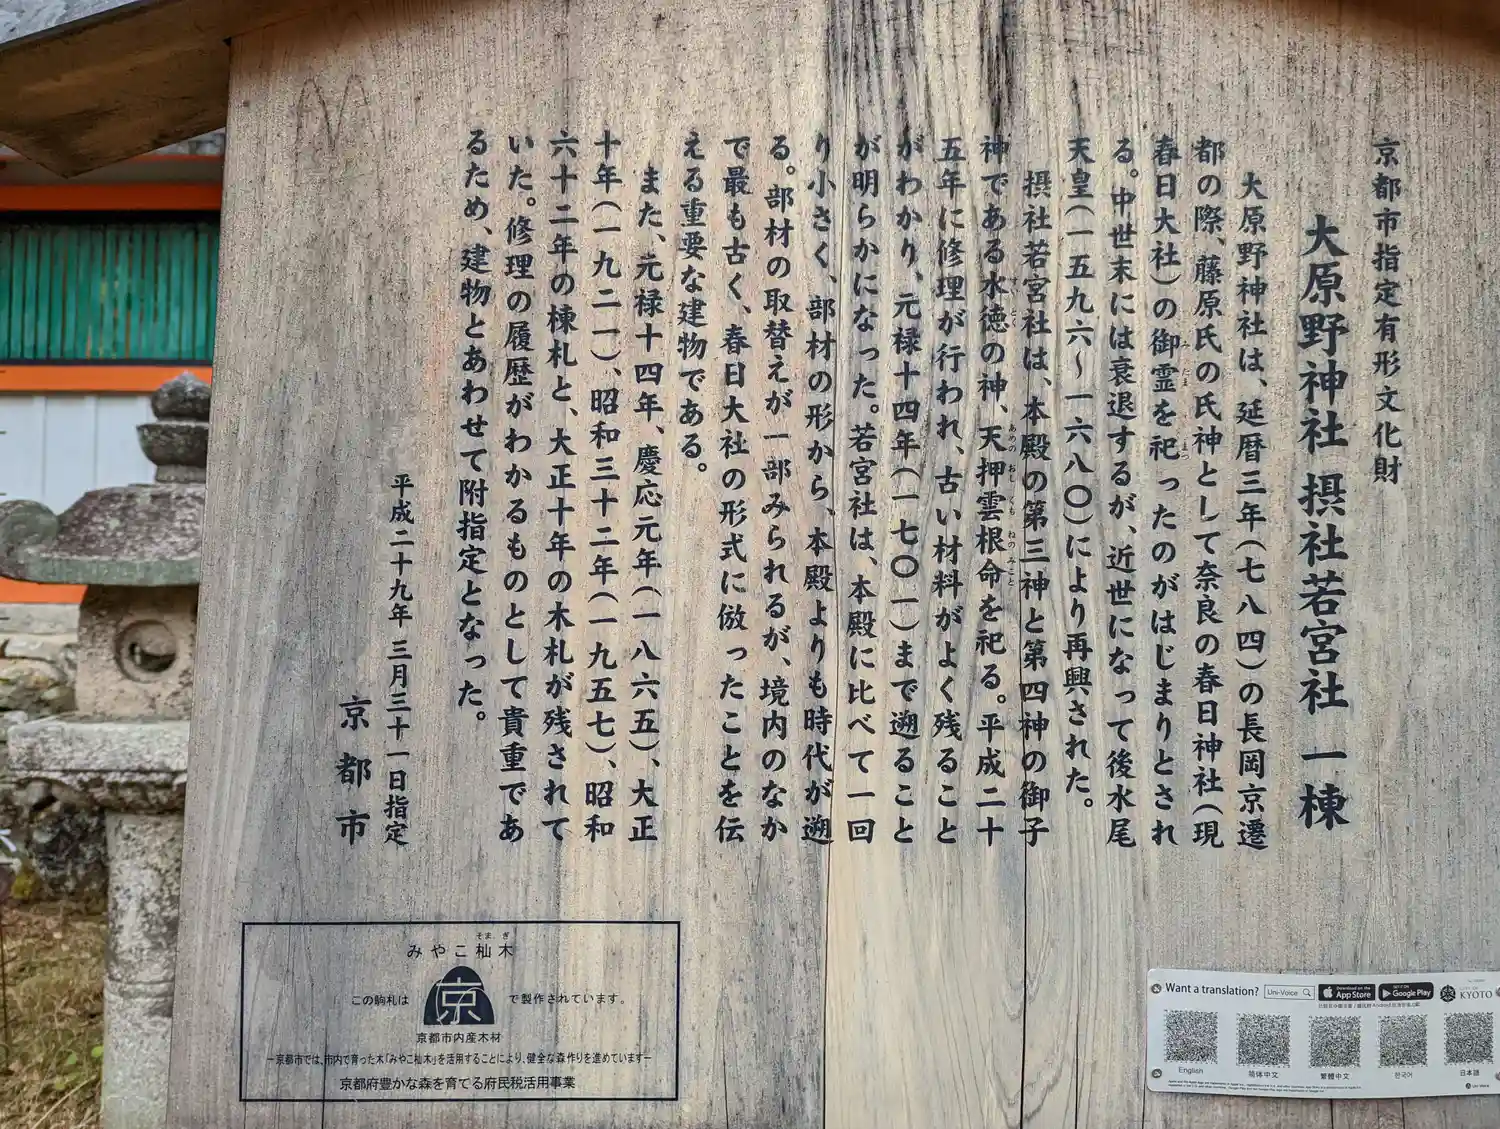 京都市指定有形文化財
大原野神社 摂社若宮社 一棟
大原野神社は、延暦三年(七八四)の長岡京遷
都の際、藤原氏の氏神として奈良の春日神社(現
春日大社)の御霊を祀ったのがはじまりとされ
る。中世末には衰退するが、近世になって後水尾
天皇(一五九六〜一六八〇)により再興された。
摂社若宮社は、本殿の第三神と第四神の御子
神である水徳の神、天押雲根命を祀る。平成二十
五年に修理が行われ、古い材料がよく残ること
がわかり、元禄十四年(一七〇一)まで遡ること
が明らかになった。若宮社は、本殿に比べて一回
り小さく、部材の形から、本殿よりも時代が遡
る。部材の取替えが一部みられるが、境内のなか
で最も古く、春日大社の形式に倣ったことを伝
える重要な建物である。
また、元禄十四年、慶応元年(一八六五)、大正
十年(一九二一)、昭和三十二年(一九五七)、昭和
六十二年の棟札と、大正十年の木札が残されて
いた。修理の履歴がわかるものとして貴重であ
るため、建物とあわせて附指定となった。
平成二十九年 三月三十一日指定
京都市
みやこ杣木
そま ぎ
この駒札は 京 で製作されています。
京都市内産木材
ー京都市では、市内で育った木「みやこ杣木」を活用することにより、健全な森作りを進めていますー
京都府豊かな森を育てる府民税活用事業
Want a translation? Uni-Voice
Download on the App Store
GET IT ON Google Play
CITY OF KYOTO
English
简体中文
繁體中文
한국어
日本語
Uni-Voice